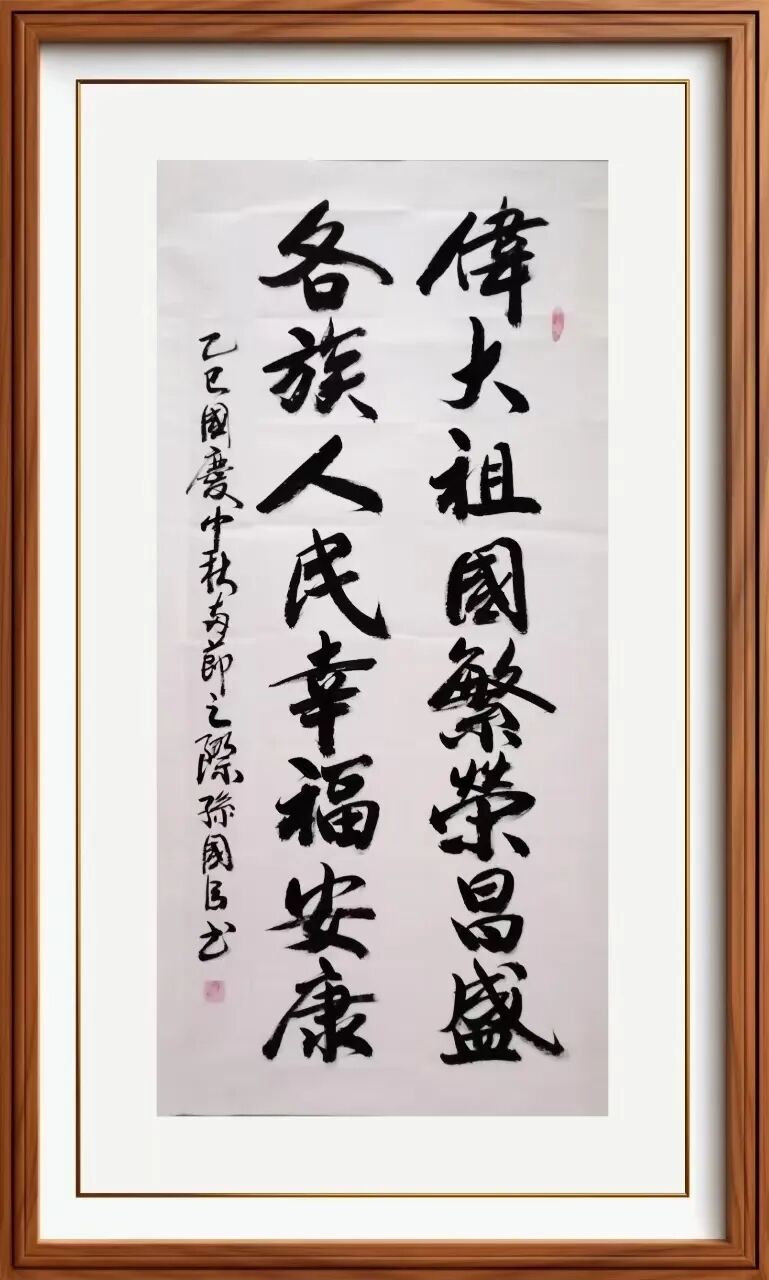 偉大祖國繁榮昌盛
各族人民幸福安康
乙巳國慶中秋兩節之際孫國følg書